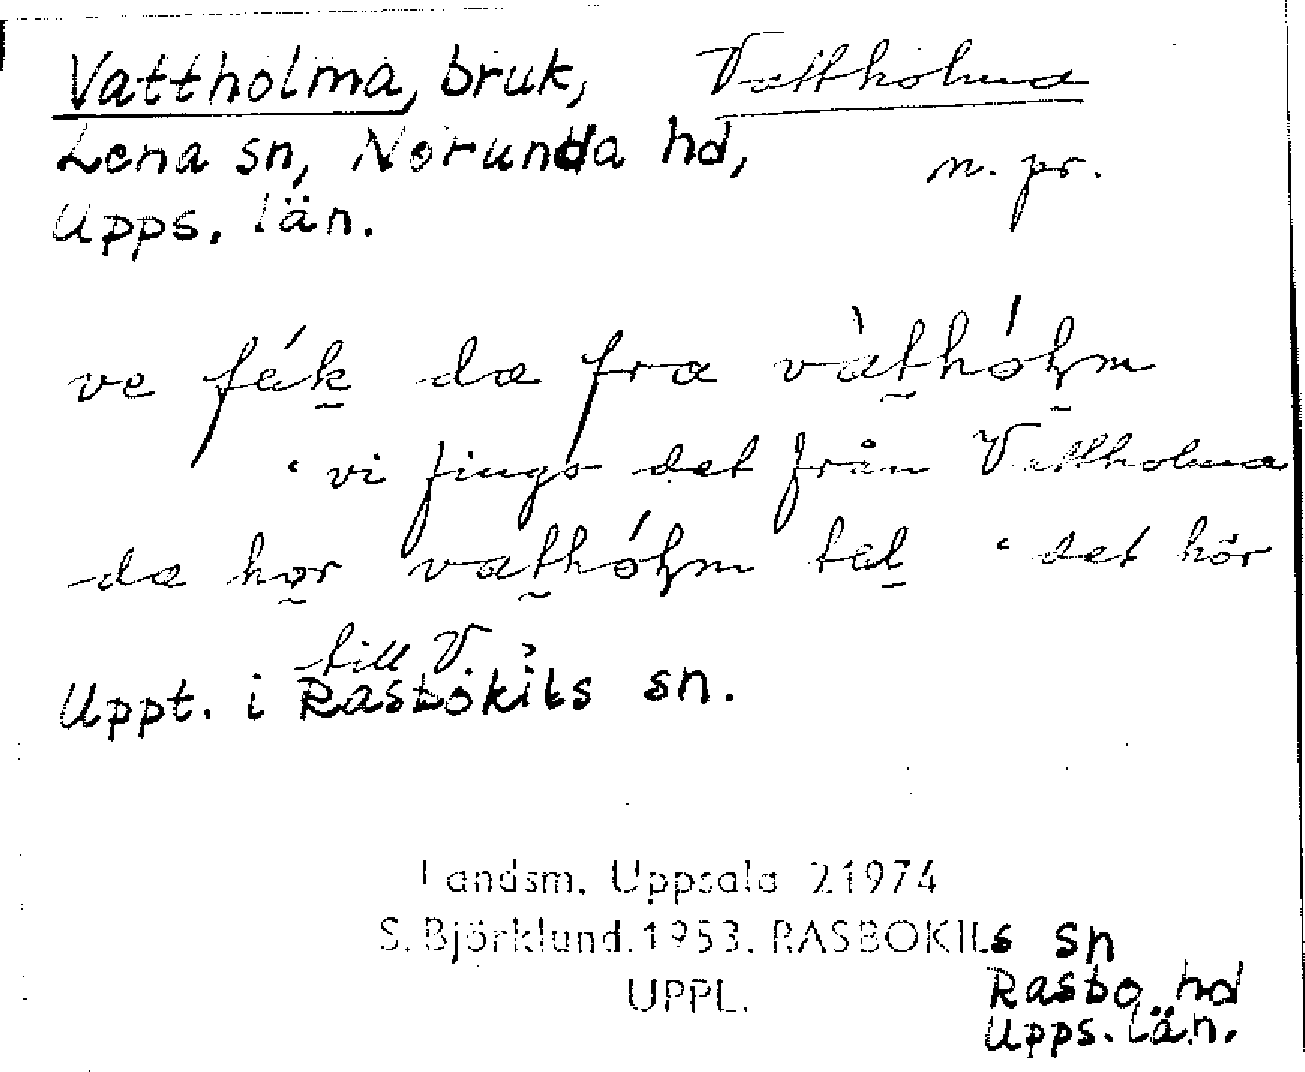 Vattholma, bruk, Vattholma
Lena sn, Norunda hd, n. pr.
Upps. län.
ve fék da fra vàthólm
‘vi fingo det från Vattholma
da hør vathólm tel ‘det hör
till V.’
Uppt. i Rasbokils sn.
Landsm. Uppsala 21974
S. Björklund. 1953. RASBOKILs sn
UPPL. Rasbo hd
Upps. län.